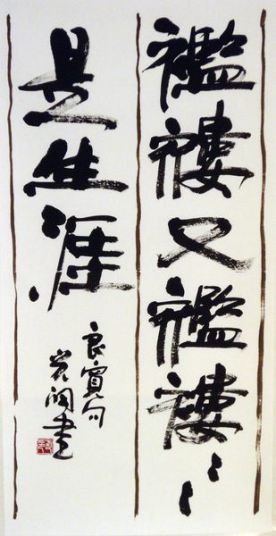 襤褸又襤褸〻〻
是生涯
良寛句
書